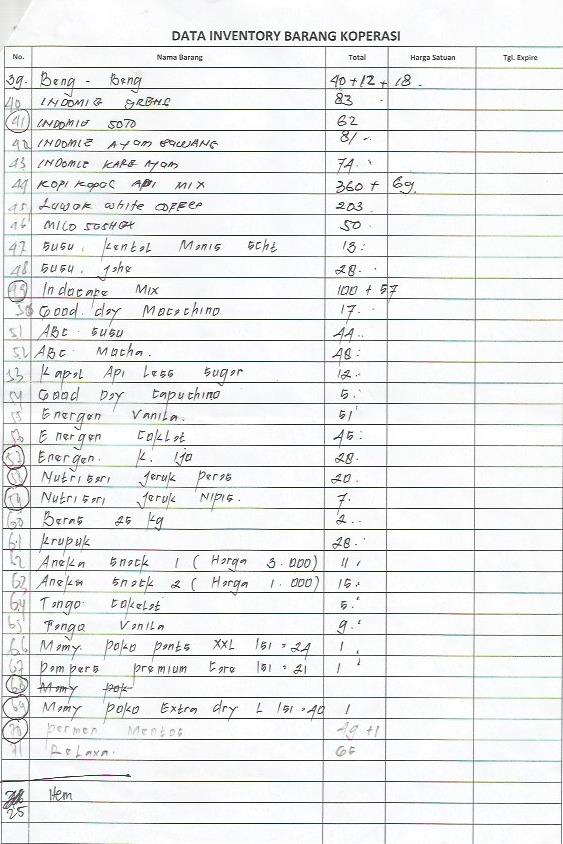 DATA INVENTORY BARANG KOPERASI
No. Nama Barang Total Harga Satuan Tgl. Expire
39. Beng - Beng 40 + 12 + 18.
40 INDOMIE GRENG 83
41 INDOMIE SOTO 62
42 INDOMIE AYAM BAWANG 81
43 INDOMIE KARE AYAM 74
44 KOPI KAPAL API MIX 360 + 69
45 Luwak white COFFEE 203
46 MILO 50
47 Susu. kental Manis Scht 13
48 Susu. Jahe 28
49 Indocafe MIX 100 + 57
50 Good. day Mocochino 17
51 ABC Susu 44
52 ABC Mocha. 48
53 Kapal Api Less Sugar 12
54 Good Day Capuchino 5
55 Energen Vanila. 51
56 Energen Coklat 45
57 Energen. K. Ijo 28
58 Nutrisari Jeruk Peras 20
59 Nutrisari Jeruk Nipis. 7
60 Beras 25 kg 2
61 Krupuk 28
62 Aneka Snack 1 ( Harga 3.000) 11
63 Aneka Snack 2 ( Harga 1.000) 15
64 Tango Cokelat 5
65 Tango Vanila 9
66 Mamy poko pants XXL ISI = 24 1
67 Pampers premium Care ISI = 21 1
68 Mamy pok
69 Mamy poko Extra dry L ISI = 40 1
70 permen Mentos 49 +1
71 Relaxa. 65
Item
25